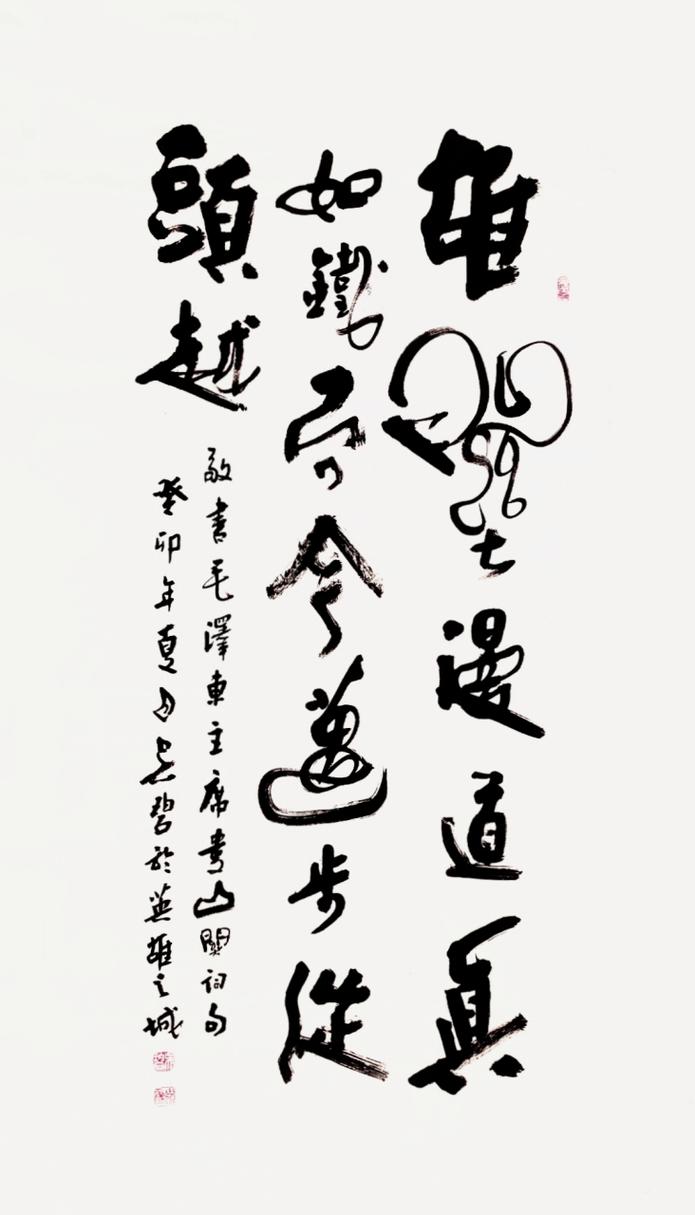 雄關漫道真
如鐵而今邁步從
頭越
敬書毛澤東主席婁山關詞句
癸卯年夏月碧於英雄之城